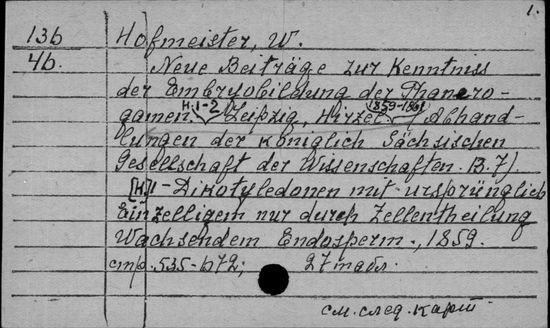 1.
136
4b.
Hofmeister, W.
Neue Beiträge zur Kenntniss
der Embryobildung der Phanero-
gamen. H. 1-2 Leipzig, Hirzel, 1859-1861 (Abhand-
lungen der königlich Sächsischen
Gesellschaft der Wissenschaften. B. 7).
[H.]1 - Dikotyledonen mit ursprünglich
einzelligem nur durch Zellentheilung
wachsendem Endosperm., 1859.
стр. 535-672; 27 табл.
см. след. карт